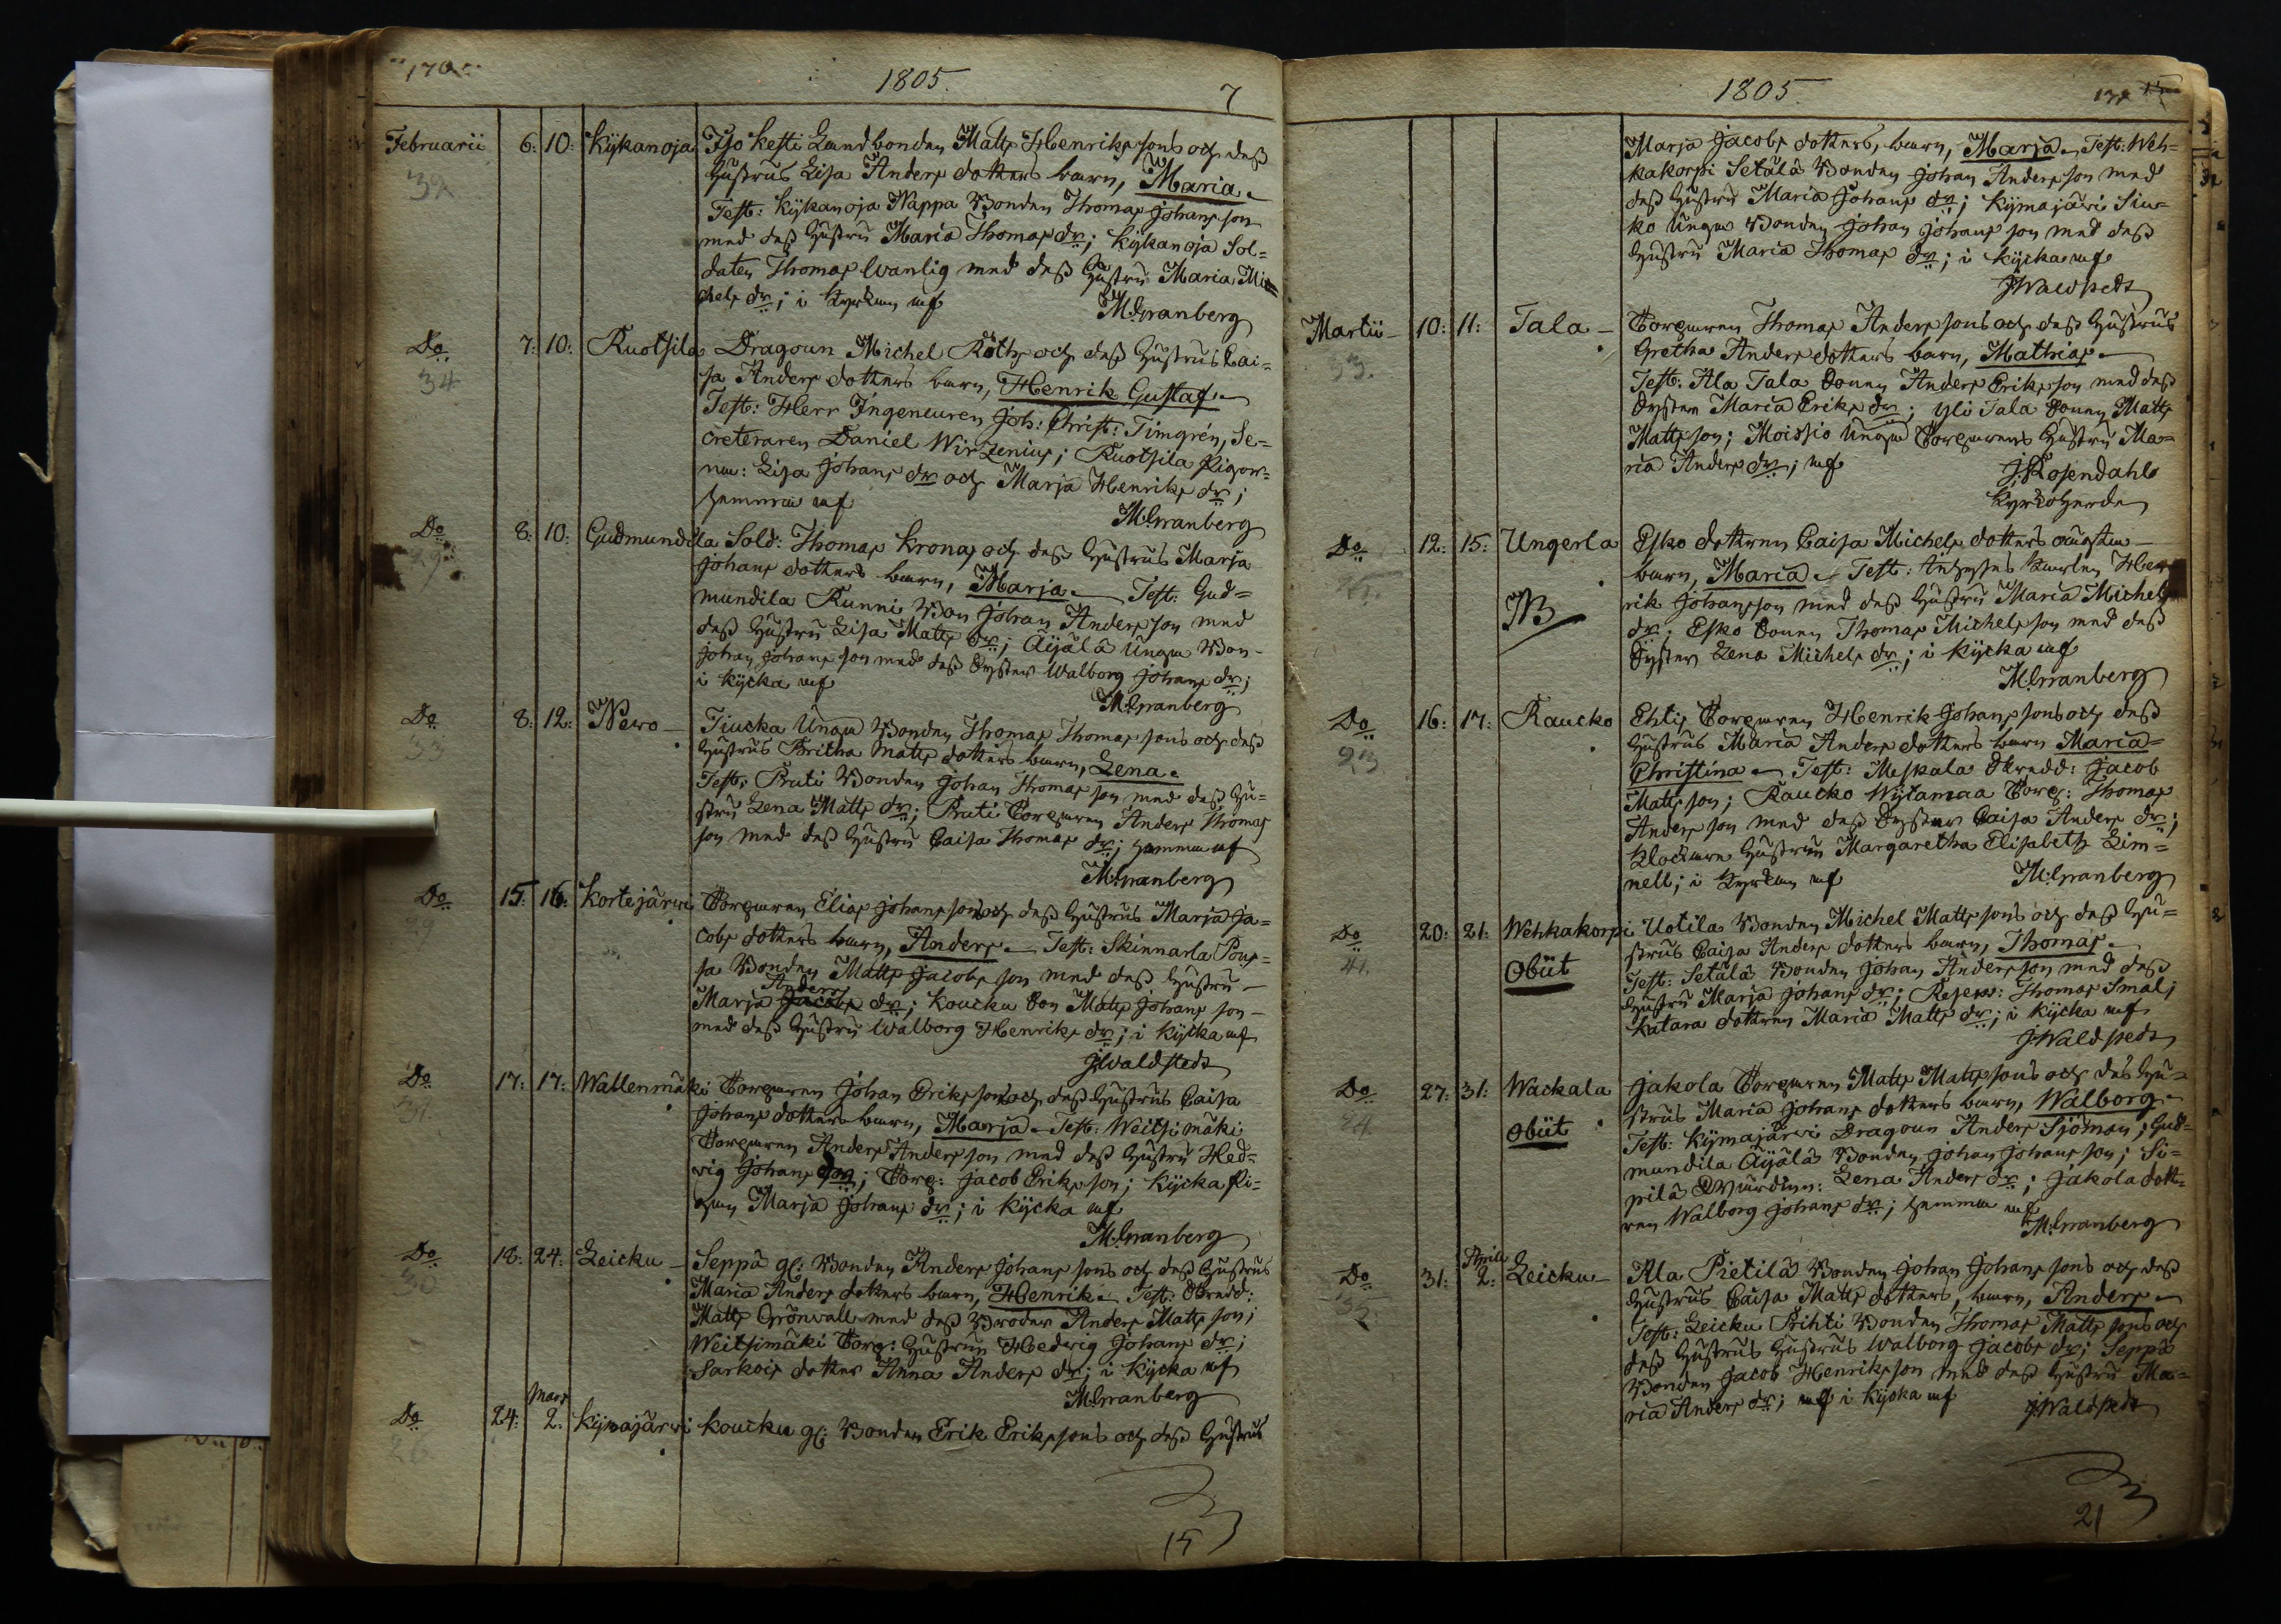 170
1805.
7
Februarii 6: 10: Kykanoja Iso Kesti Landbonden Matts Henrikssons och dess
32 Hustrus Lisa Anders dotters barn, Maria.
Test: Kykanoja Nappa Bonden Thomas Johansson
med dess Hustru Maria Thomas dr; Kykanoja Sol=
daten Thomas Wanlig med dess Hustru Maria Mi=
chels dr; i Kyrkan af
M:Granberg
Do 7: 10: Ruotsila Dragoun Michel Röths och dess Hustrus Cai=
34 sa Anders dotters barn, Henrik Gustaf.
Test: Herr Ingeneuren Joh: Christ: Timgrén, Se=
creteraren Daniel Wirzenius; Ruotsila Pigor=
na: Lisa Johans dr och Marja Henriks dr;
hemma af
M:Granberg
Do 8: 10: Gudmundila Sold: Thomas Kronas och dess Hustrus Marja
29 Johans dotters barn, Marja. Test: Gud=
mundila Runni Bon Johan Andersson med
dess Hustru Lisa Matts dr; Äijälä Unga Bon
Johan Johansson med dess Syster Walborg Johans dr;
i Kycka af
M:Granberg
Do 8: 12: Nero Tiucka Unga Bonden Thomas Thomassons och dess
33 Hustrus Britha Matts dotters barn, Lena.
Test: Prati Bonden Johan Thomasson med dess Hu=
stru Lena Matts dr; Prati Torparen Anders Thomas
son med dess Hustru Caisa Thomas dr; hemma af
M:Granberg
Do 15: 16: Kortejärwi Torparen Elias Johanssons och dess Hustrus Marja Ja=
29 cobs dotters barn, Anders. Test: Skinnarla Pous=
sa Bonden Matts Jacobsson med dess Hustru
Anders
Marja Jacobs dr; Koucku Son Matts Johansson
med dess Hustru Walborg Henriks dr; i Kycka af
J:Waldstedt
Do 17: 17: Wallenmäki Torparen Johan Erikssons och dess Hustrus Caisa
31. Johans dotters barn, Marja. Test: Weitsimäki
Torparen Anders Andersson med dess Hustru Hed=
vig Johans dr; Torp: Jacob Eriksson; Kycka Pi=
gan Marja Johans dr; i Kycka af
M:Granberg
Do 18: 24: Leicku Seppä gl: Bonden Anders Johanssons och dess Hustrus
30 Maria Anders dotters barn, Henrik. Test: Skredd:
Matts Grönvall med dess Broder Anders Mattsson;
Weitsimäki Torp: Hustrun Hedvig Johans dr;
Sarkois dotter Anna Anders dr; i Kycka af
M:Granberg
Mars
Do 24: 2. Kymajärwi Koucku gl: Bonden Erik Erikssons och dess Hustrus
26
15
1805.
Marja Jacobs dotters, barn, Marja. Test: Weh=
kakorpi Setälä Bonden Johan Andersson med
dess Hustru Maria Johans dr; Kymajärwi Siu=
ko Unga Bonden Johan Johansson med dess
Hustru Maria Thomas dr; i Kycka af
J:Waldstedt
Martii 10: 11: Tala Torparen Thomas Anderssons och dess Hustrus
33. Gretha Anders dotters barn, Mathias.
Test: Ala Tala Sonen Anders Eriksson med dess
Syster Maria Eriks dr; Yli Tala Sonen Matts
Mattsson; Moissio Unga Torparens Hustru Ma=
ria Anders dr; af
J:Rosendahl
Kyrkoherde
Do 12: 15: Ungerla Esko dottren Caisa Michels dotters oäckta
barn, Maria. Test: Karlen Hen
NB rik Johansson med dess Hustru Maria Michels
dr; Esko Sonen Thomas Michelsson med dess
Syster Lena Michels dr; i Kycka af
M:Granberg
Do 16: 17: Raucko Ehtis Torparen Henrik Johanssons och dess
23 Hustrus Maria Anders dotters barn Maria=
Christina. Test: Meskala Skredd: Jacob
Mattsson; Raucko Wytamaa Torp: Thomas
Andersson med dess Syster Caisa Anders dr;
Klockare Hustrun Margaretha Elisabeth Lim=
nell; i Kyrkan af
M:Granberg
Do 20: 21: Wehkakorpi Uotila Bonden Michel Mattssons och dess Hu=
41. strus Caisa Anders dotters barn, Thomas.
Obiit Test: Setälä Bonden Johan Andersson med dess
Hustru Marja Johans dr; Reserv: Thomas Smal;
Katara dottren Maria Matts dr; i Kycka af
J:Waldstedt
Do 27: 31: Wackala Jakola Torparen Matts Mattssons och dess Hu=
24 strus Maria Johans dotters barn, Walborg.
Obiit Test: Kymajärwi Dragoun Anders Sjöman; Gud=
mundila Äijälä Bonden Johan Johansson; Si=
pilä Lena Anders dr; Jakola dott=
ren Walborg Johans dr; hemma af
M:Granberg
Aprill
Do 31: 2: Leicku Ala Pietilä Bonden Johan Johanssons och dess
32 Hustrus Caisa Matts dotters, barn, Anders.
Test: Leicku Prihti Bonden Thomas Mattssons och
dess Hustrus Hustrus Walborg Jacobs dr; Seppä
Bonden Jacob Henriksson med dess Hustru Ma=
ria Anders dr; af i Kycka af
J:Waldstedt
21